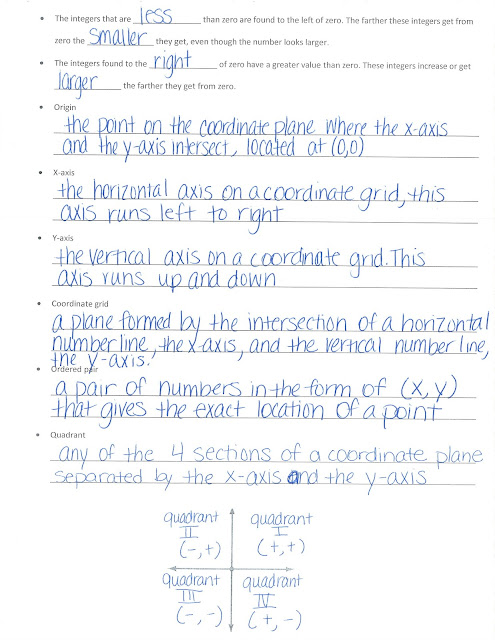 • The integers that are less than zero are found to the left of zero. The farther these integers get from
zero the smaller they get, even though the number looks larger.
• The integers found to the right of zero have a greater value than zero. These integers increase or get
larger the farther they get from zero.
• Origin
the point on the coordinate plane where the x-axis
and the y-axis intersect, located at (0,0)
• X-axis
the horizontal axis on a coordinate grid, this
axis runs left to right
• Y-axis
the vertical axis on a coordinate grid. This
axis runs up and down
• Coordinate grid
a plane formed by the intersection of a horizontal
number line, the x-axis, and the vertical number line,
the y-axis.
• Ordered pair
a pair of numbers in the form of (x,y)
that gives the exact location of a point
• Quadrant
any of the 4 sections of a coordinate plane
separated by the x-axis and the y-axis
quadrant quadrant
II I
(-,+) (+,+)
quadrant quadrant
III IV
(-,-) (+,-)